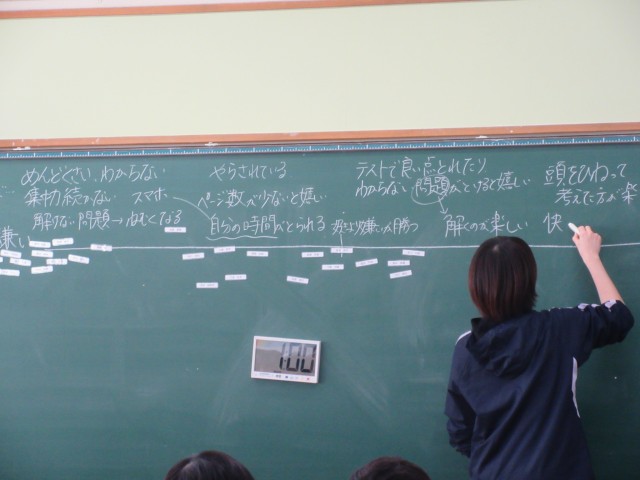 めんどくさい、わからない
集中続かない スマホ
解けない問題→ねむくなる
嫌い
やらされている
ページ数が少ないと嬉しい
自分の時間がとられる
嫌いが勝つ
テストで良い点とれたり
わからない問題がとけると嬉しい
解くのが楽しい
頭をひねって
考えた方が楽
快
1:00